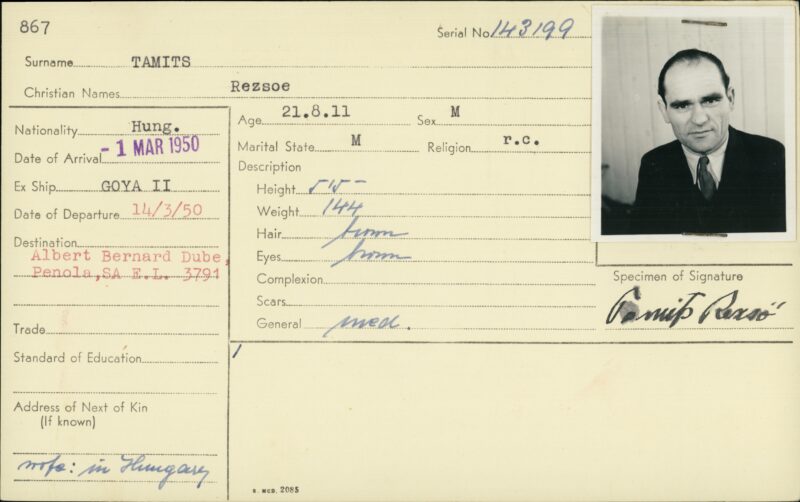 867
Serial No. 143199
Surname TAMITS
Christian Names Rezsoe
Nationality Hung.
Date of Arrival - 1 MAR 1950
Ex Ship GOYA II
Date of Departure 14/3/50
Destination
Albert Bernard Dube,
Penola, SA E.L. 3791
Trade
Standard of Education
Address of Next of Kin
(If known)
wife: in Hungary
Age 21.8.11 Sex M
Marital State M Religion r.c.
Description
Height 5'5"
Weight 144
Hair brown
Eyes brown
Complexion
Scars
General med.
Specimen of Signature
Tamits Rezsö
R. MCD. 2085